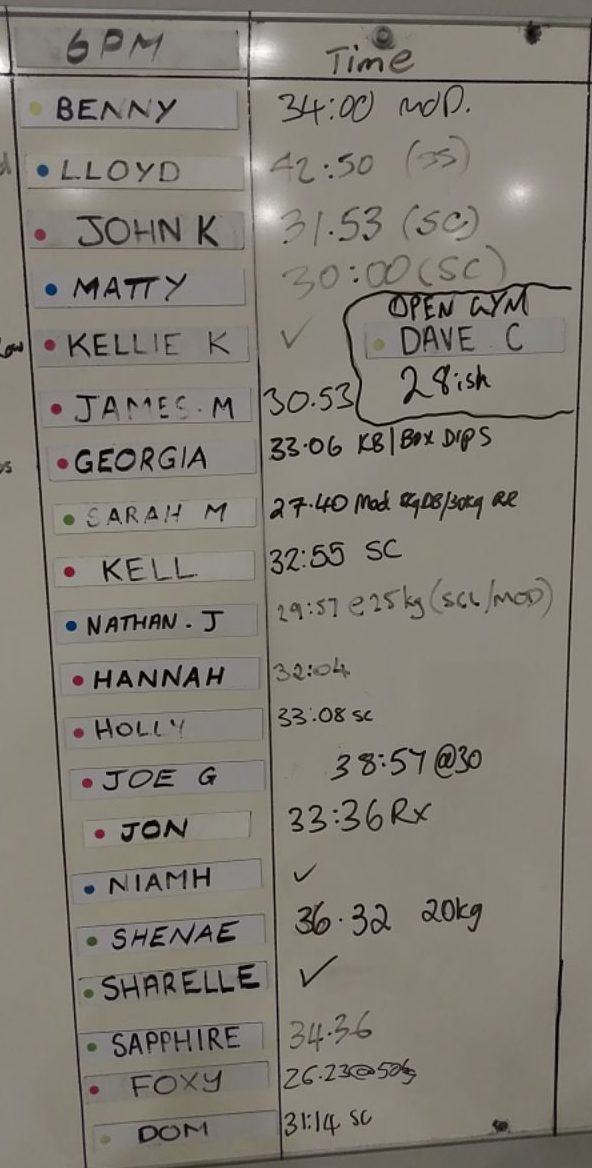 6PM Time
BENNY 34:00 MOD.
LLOYD 42:50
JOHN K 31.53 (SC)
MATTY 30:00 (SC)
OPEN GYM
KELLIE K ✓ DAVE C
28ish
JAMES. M 30.53
GEORGIA 33.06 KB | BOX DIPS
SARAH M 27.40 Mod 8kg DB/30kg RR
KELL 32:55 SC
NATHAN. J 29:57 @ 25kg (SCL/MOD)
HANNAH 32:04
HOLLY 33:08 SC
JOE G 38:57 @30
JON 33:36 Rx
NIAMH ✓
SHENAE 36.32 20kg
SHARELLE ✓
SAPPHIRE 34.36
FOXY 26.23@50kg
DOM 31:14 SC